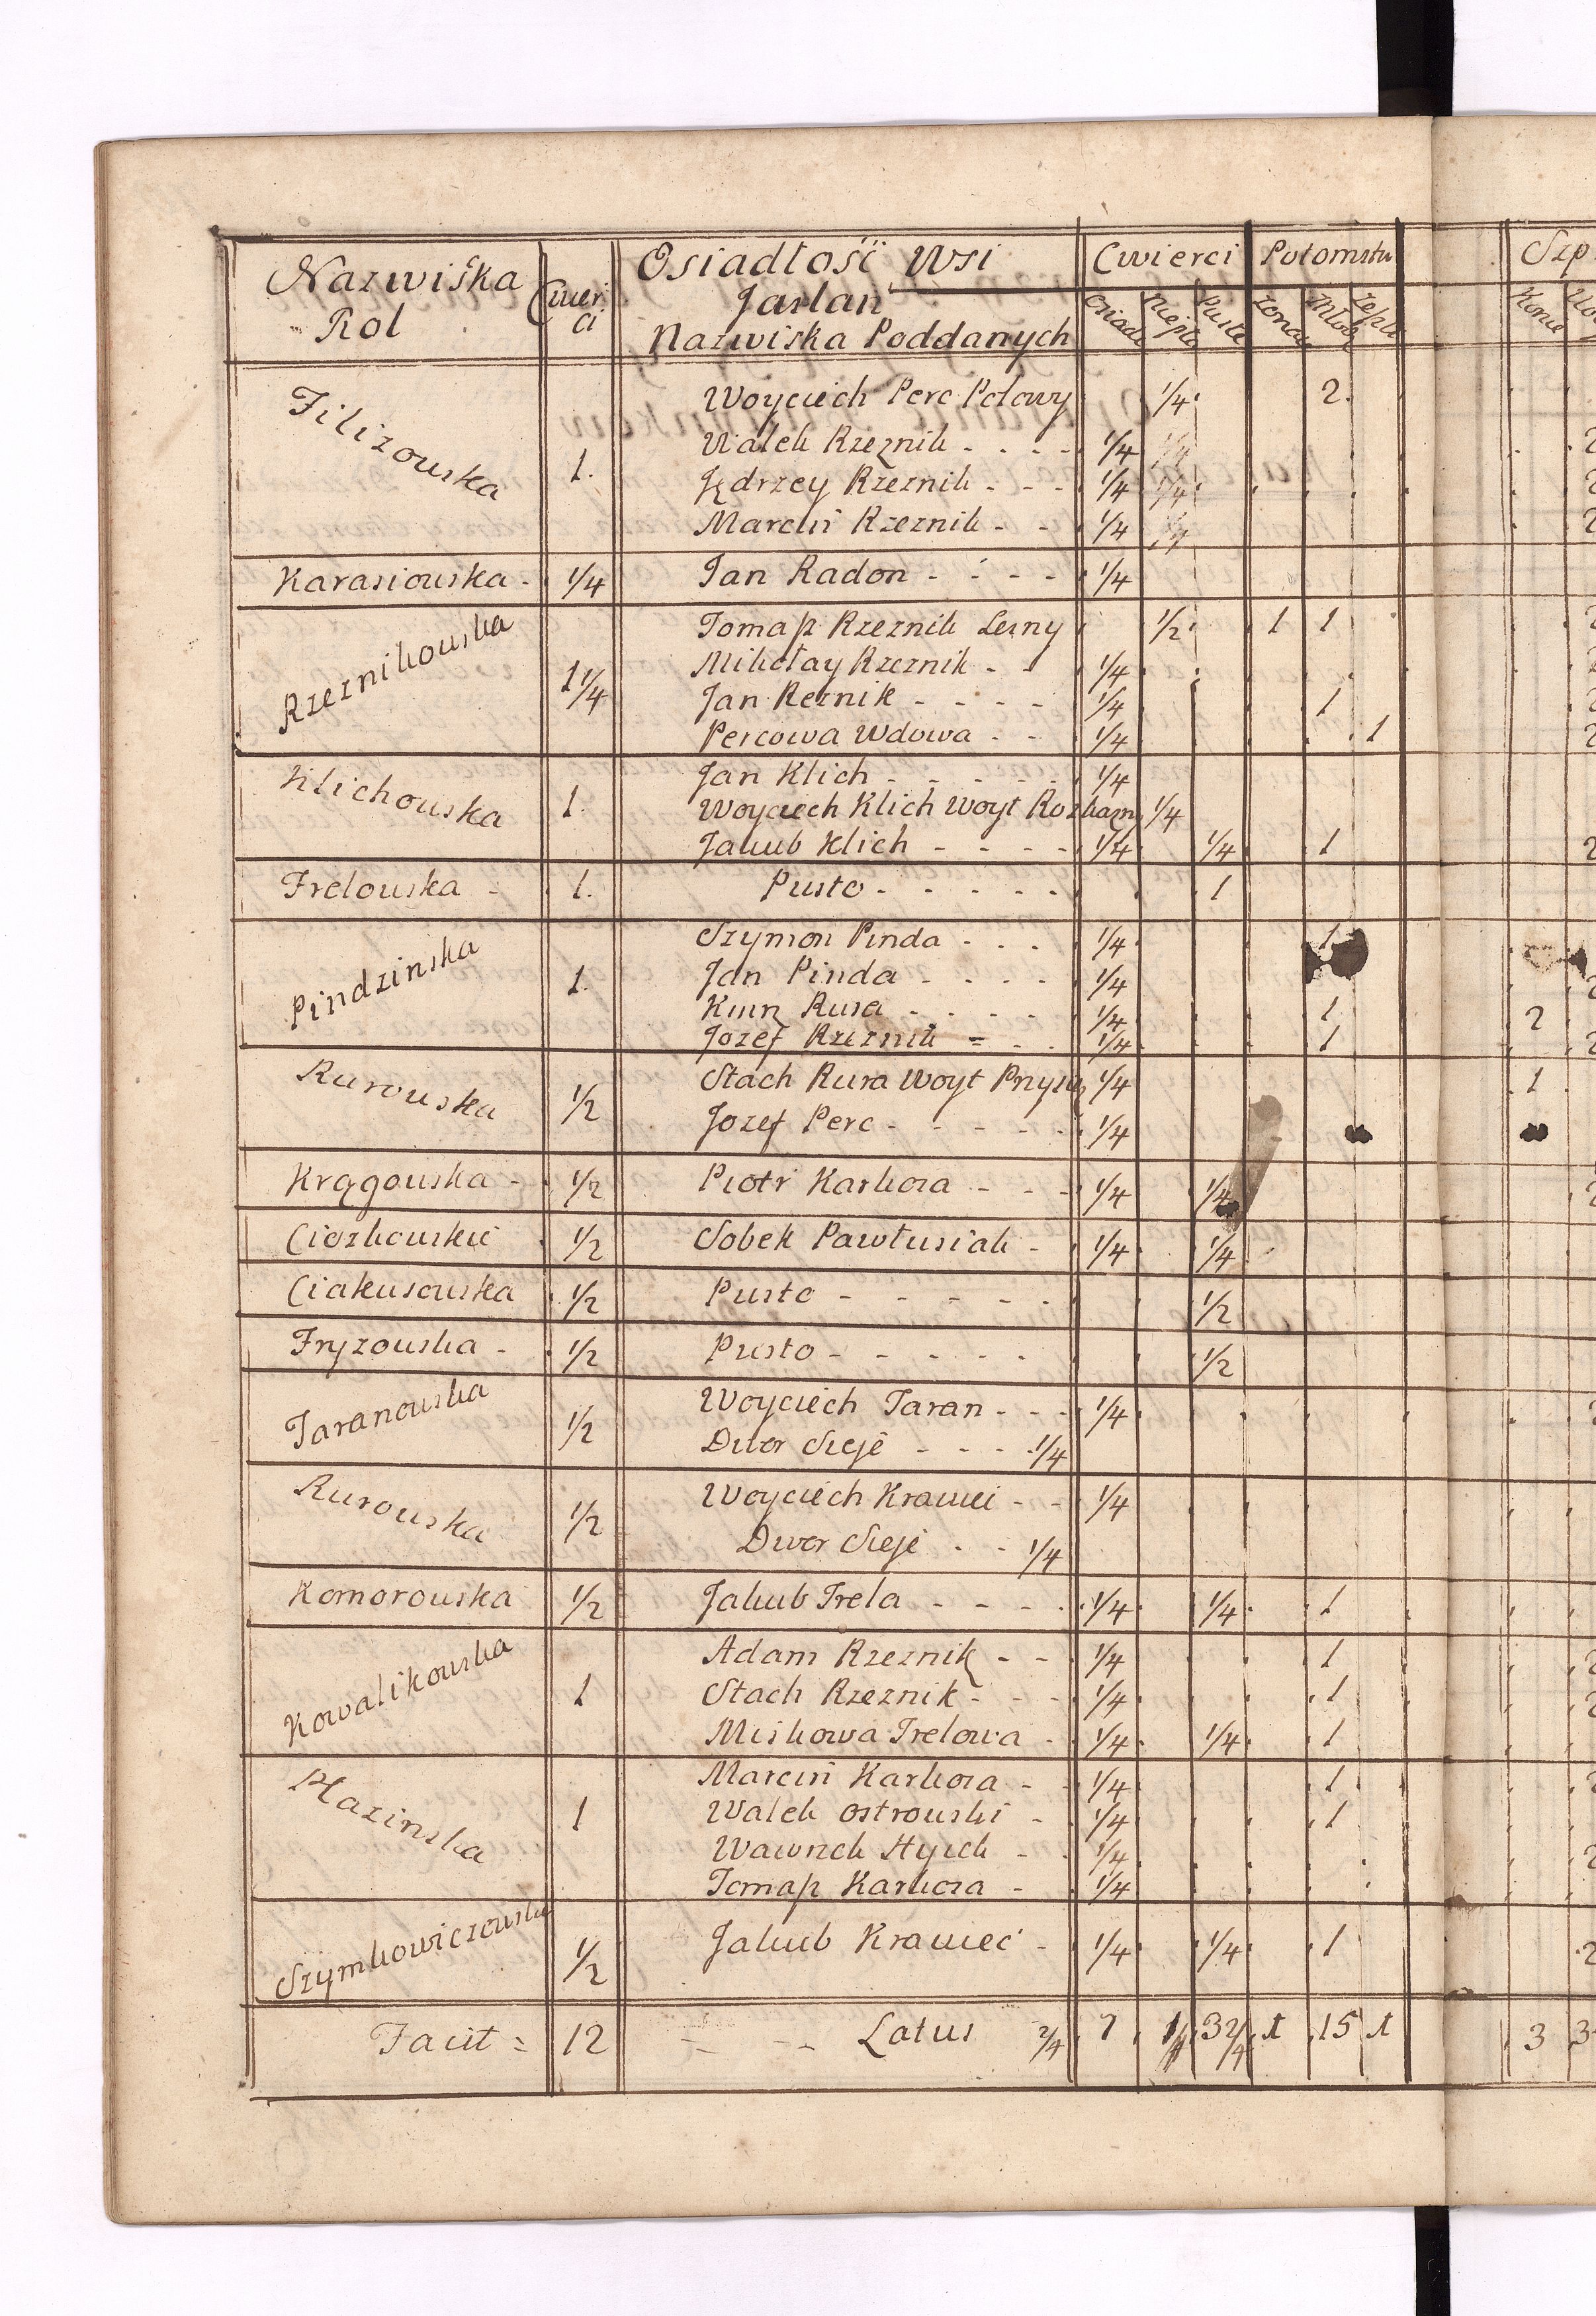 Nazwiska Rol
Cwierci
Osiadłośći Wsi
Jastan
Nazwiska Poddanych
Cwierci
Potomstw
Szp
osiadł
Niepła
Puste
żonat
Młod
Konie
Filizowska 1. Woyciech Perc Polowy 1/4 2.
Walek Rzeznik - - - - 1/4 1/4
Jędrzey Rzeznik - - - 1/4 1/4
Marcin Rzeznik - - 1/4 1/4
Karasiowska - 1/4 Jan Radon - - - - 1/4
Rzeznikowska 1 1/4 Tomasz Rzeznik Lesny 1/2 1 1
Mikołay Rzeznik - - 1/4
Jan Reznik - - - - 1/4 1
Percowa Wdowa - - 1/4 1
Klichowska 1. Jan Klich - - - - - 1/4
Woyciech Klich Woyt 1/4
Jakub Klich - - - - 1/4 1/4 1
Trelowska - 1. Pusto - - - - - 1
Pindzinska 1. Szymon Pinda - - - 1/4 1
Jan Pinda - - - - 1/4
Rura - - - - 1/4 1 2
Jozef Rzeznik = - - 1/4 1
Rurowska 1/2 Stach Rura Woyt 1/4 1
Jozef Perc - - - - - 1/4
Krągowska - 1/2 Piotr Karkosa - - - 1/4 1/4
1/2 Sobek Pawlusiak - 1/4 1/4
Ciakusowska 1/2 Pusto - - - - - 1/2
Fryzowska - 1/2 Pusto - - - - - 1/2
Taranowska 1/2 Woyciech Taran - - - 1/4
Dwor Sieje - - - 1/4
Rurowska 1/2 Woyciech Krawiec - - 1/4
Dwor Sieje - - 1/4
Komorowska 1/2 Jakub Trela - - - - 1/4 1/4 1
Kowalikowska 1 Adam Rzeznik - - 1/4 1
Stach Rzeznik - - - 1/4 1
Miskowa Trelowa - 1/4 1/4 1
1 Marcin Karkosa - 1/4 1
Walek Ostrowski - 1/4 1
1/4
Tomasz Karkosa - 1/4
Szymkowiczowska 1/2 Jakub Krawiec - 1/4 1/4 1
Facit = 12 - - Latus 2/4 7 3 2/4 1 15 1 3